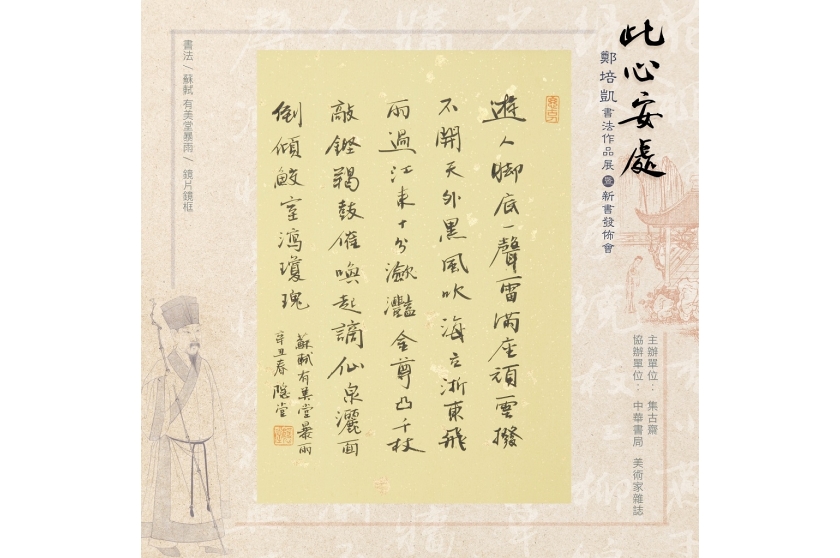 此心安處
鄭培凱書法作品展暨新書發佈會
主辦單位：集古齋
協辦單位：中華書局 美術家雜誌
遊人腳底一聲雷滿座頑雲撥
不開天外黑風吹海立浙東飛
雨過江來十分瀲灩金尊凸千杖
敲鏗羯鼓催喚起謫仙泉灑面
倒傾鮫室瀉瓊瑰
蘇軾有美堂暴雨
辛丑春隱堂
書法/蘇軾 有美堂暴雨/鏡片鏡框